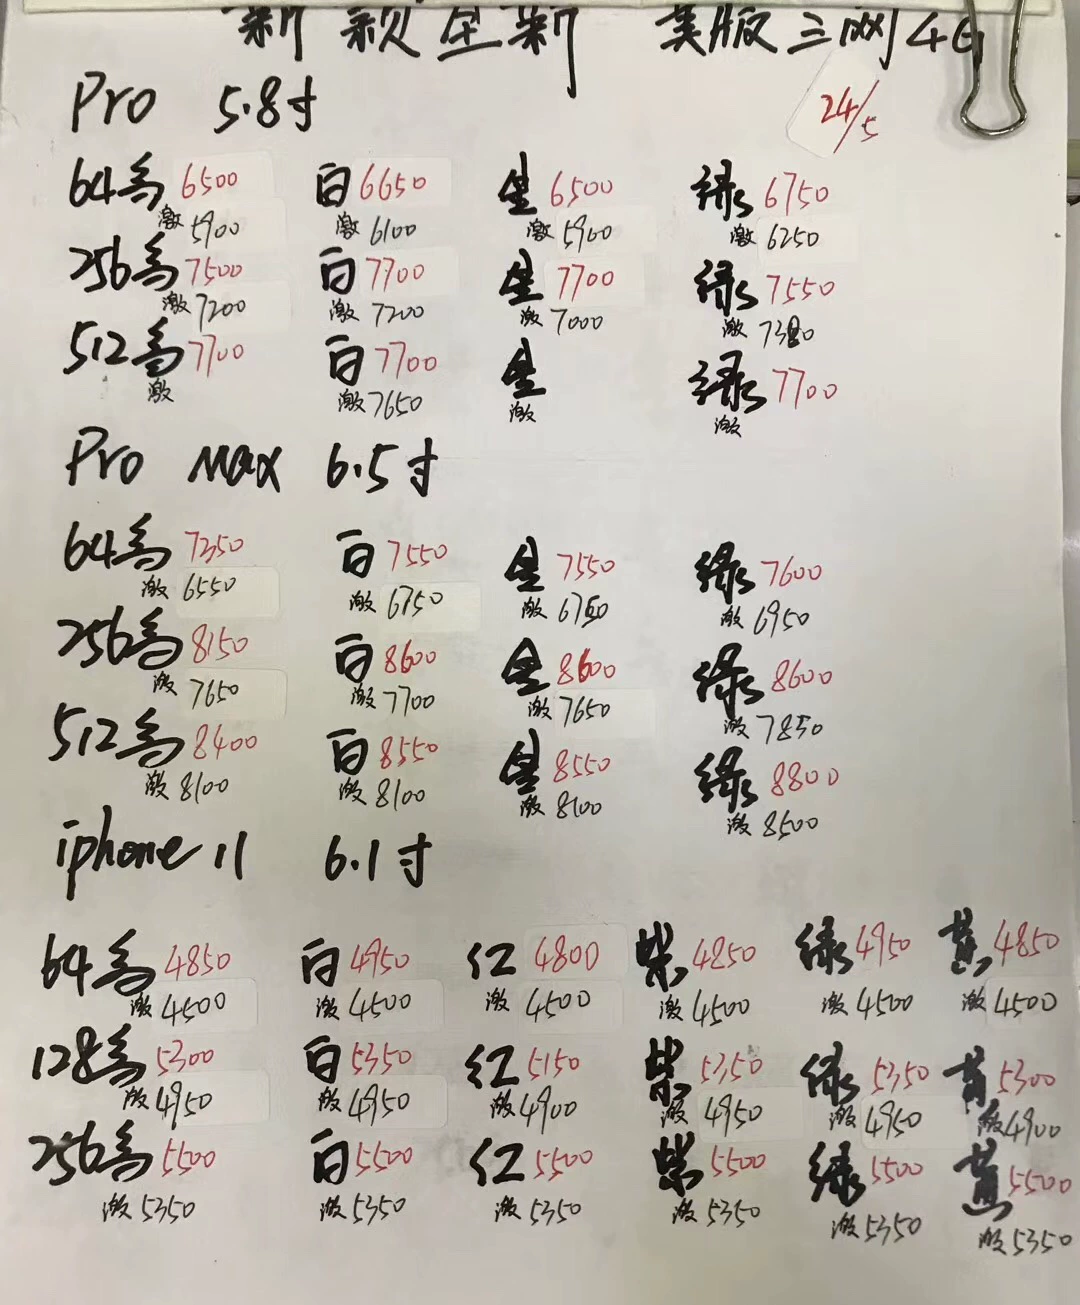 新款全新 美版三网4G
24/5
Pro 5.8寸
64黑 6500 白 6650 金 6500 绿 6750
激 5900 激 6100 激 5900 激 6250
256黑 7500 白 7700 金 7700 绿 7550
激 7200 激 7200 激 7000 激
512黑 7700 白 7700 金 绿 7700
激 激 7650 激 激
Pro Max 6.5寸
64黑 白 7550 金 7550 绿 7600
激 6550 激 6750 激 6750 激 6950
256黑 8150 白 8600 金 8600 绿 8600
激 7650 激 7700 激 7650 激 7850
512黑 8400 白 8550 金 8550 绿 8800
激 8100 激 8100 激 8100 激 8500
iphone 11 6.1寸
64黑 4850 白 4950 红 4800 紫 4850 绿 4950 黄 4850
激 4500 激 4500 激 4500 激 4500 激 4500 激 4500
128黑 5300 白 5350 红 5150 紫 5350 绿 5350 黄 5300
激 4950 激 4950 激 4900 激 4950 激 4950 激 4900
256黑 5500 白 5500 红 5500 紫 5500 绿 5500 黄 5500
激 5350 激 5350 激 5350 激 5350 激 5350 激 5350